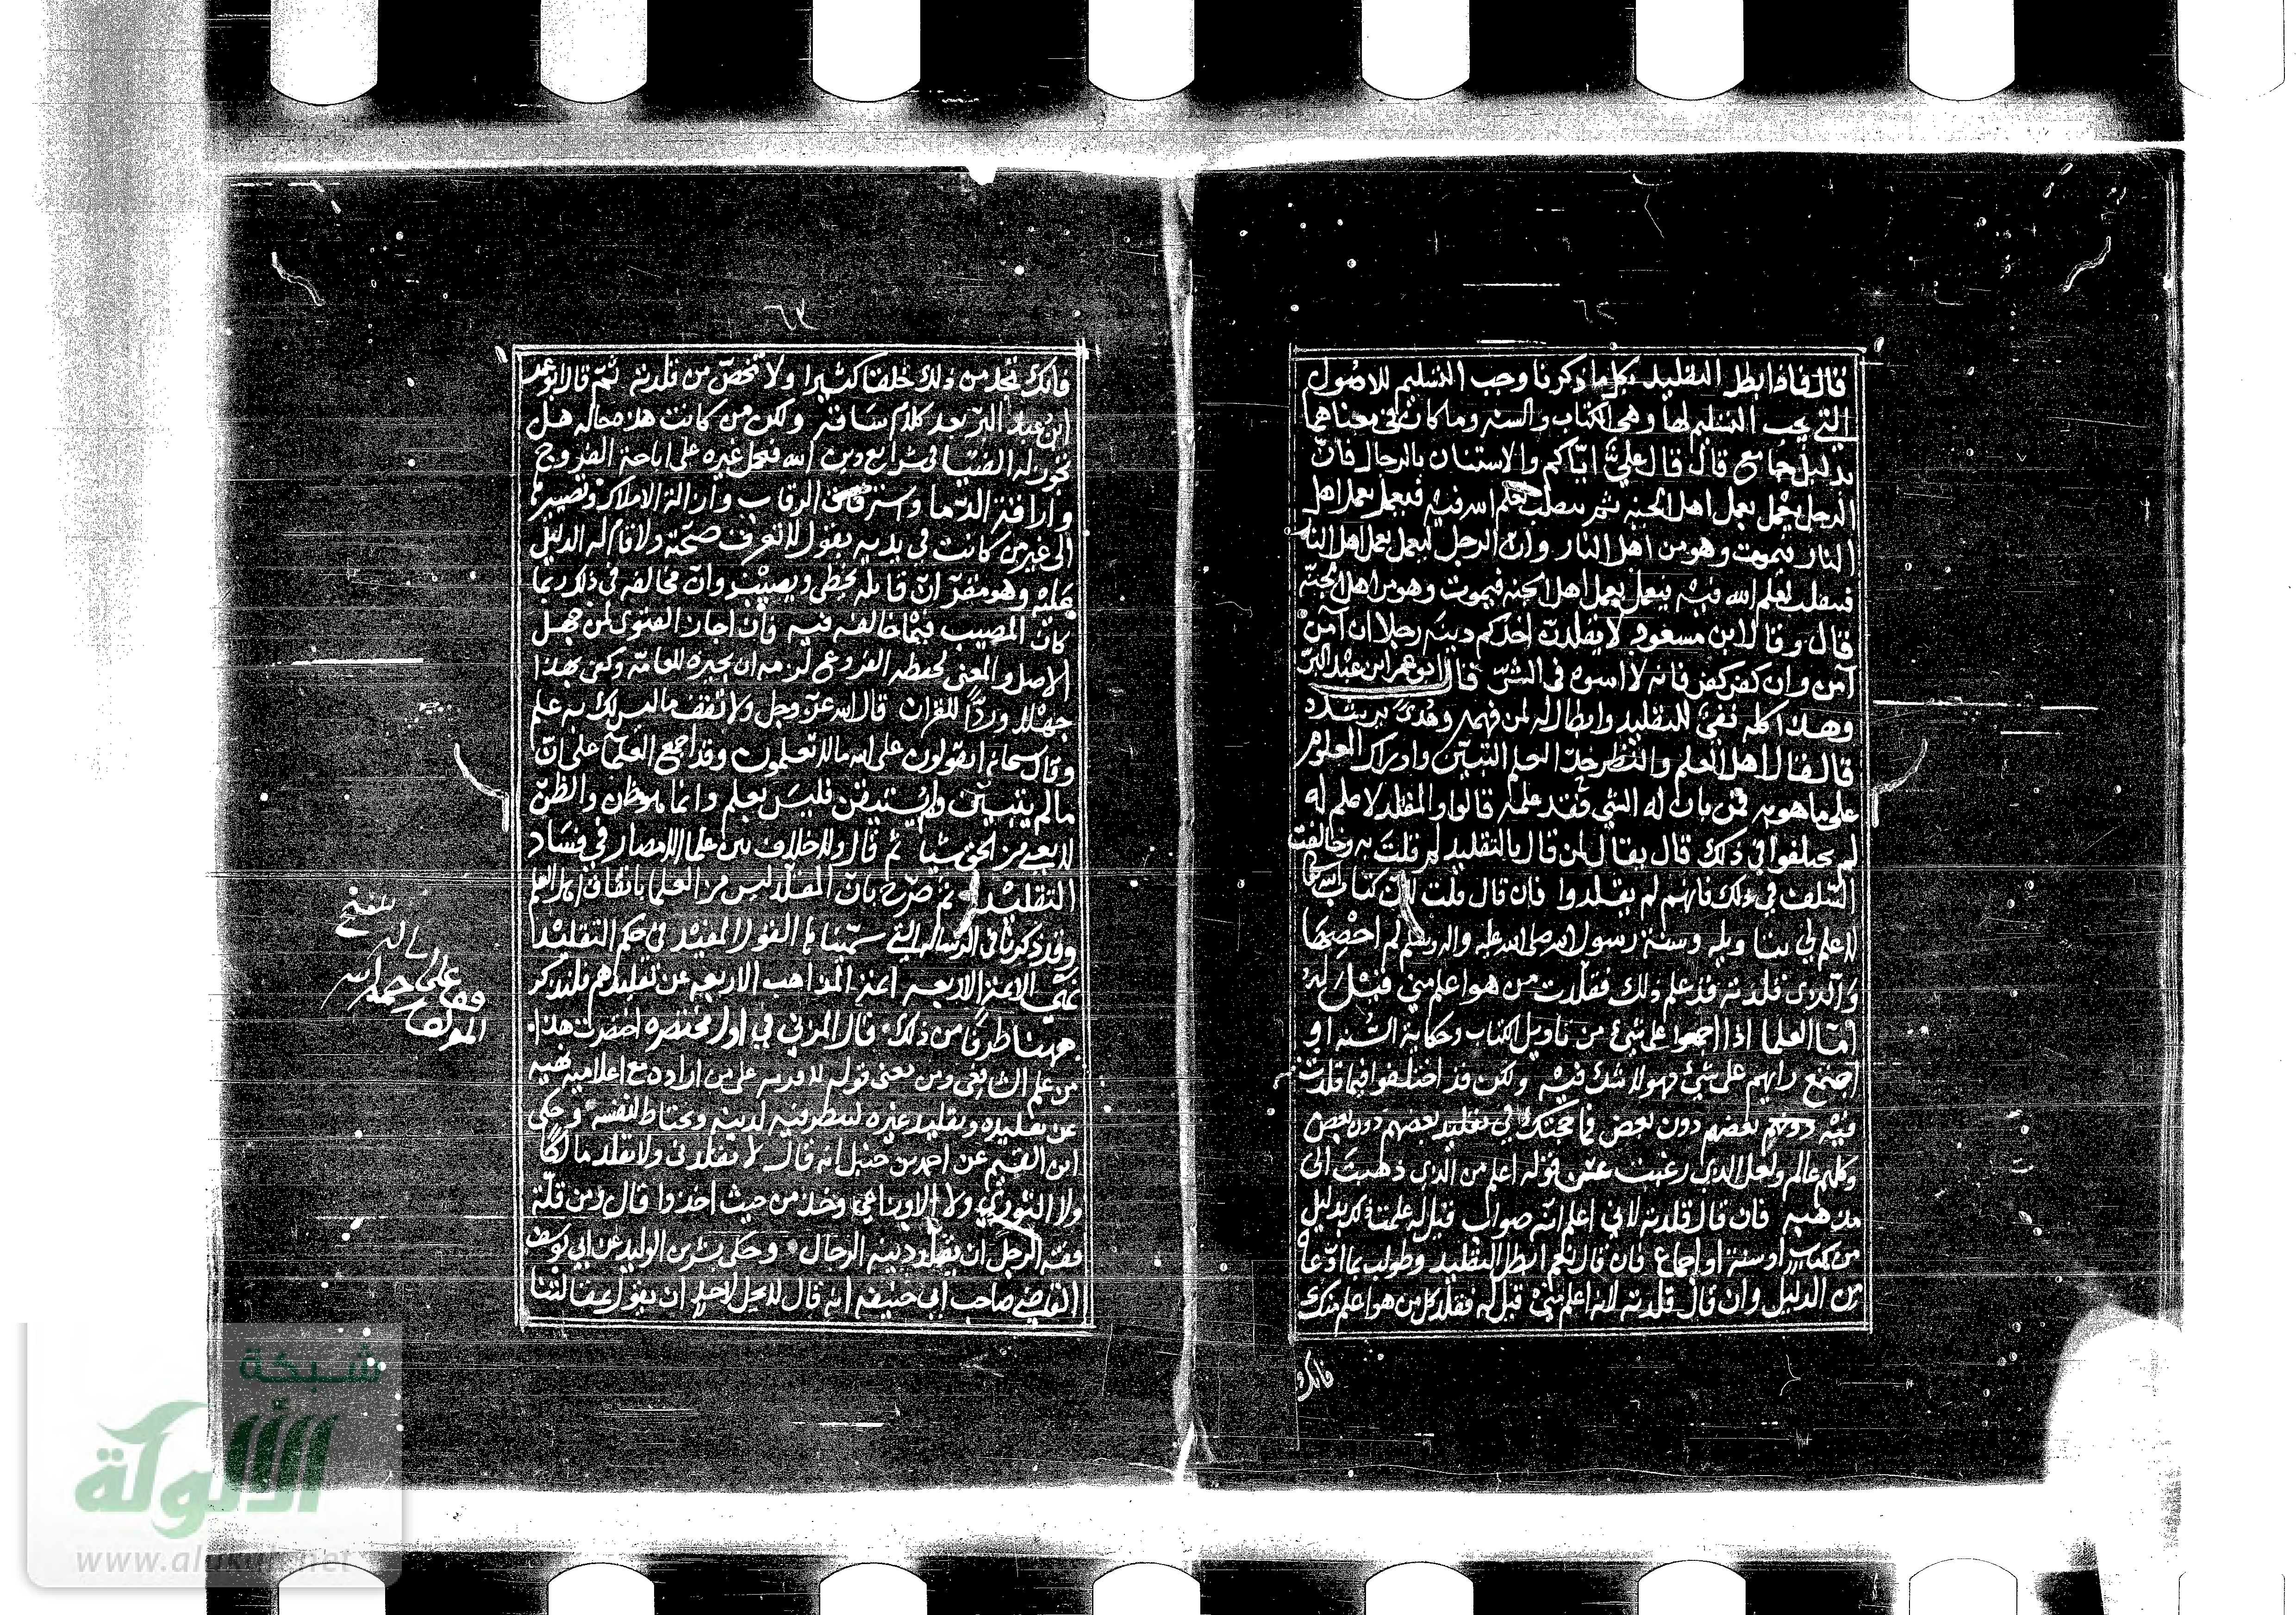 قال فاذا بطل التقليد بكل ما ذكرنا وجب التسليم للاصول
التي يجب التسليم لها وهي الكتاب والسنه وما كان في معناهما
بدليل جامع قال قال علي اياكم والاستنان بالرجال فان
الرجل يعمل بعمل اهل الجنه ثم ينقلب لعلم الله فيه فيعمل بعمل اهل
النار فيموت وهو من اهل النار وان الرجل ليعمل بعمل اهل النار
فينقلب لعلم الله فيه فيعمل بعمل اهل الجنه فيموت وهو من اهل الجنة
قال وقال ابن مسعود لا يقلدن احدكم دينه رجلا ان آمن
آمن وان كفر كفر فانه لا اسوه في الشر قال ابو عمر ابن عبد البر
وهذا كله نفي للتقليد وابطال له لمن فهمه وهدي لرشده
قال قال اهل العلم والنظر حد العلم التبين وادراك العلوم
على ما هو به فمن بان له الشي فقد علمه قالوا والمقلد لا علم له
لم يختلفوا في ذلك قال يقال لمن قال بالتقليد لم قلت به وخالفت
السلف في ذلك فانهم لم يقلدوا فان قال قلت لان كتاب الله
لا علم لي بتاويله وسنة رسول الله صلى الله عليه واله وسلم لم احصها
والذي قلدته قد علم ذلك فقلدت من هو اعلم مني قيل له
اما العلما اذا اجمعوا على شيء من تاويل الكتاب وحكاية السنه او
اجتمع رايهم على شيء فهو لا شك فيه ولكن قد اختلفوا فيما قلدت
فيه بعضهم دون بعض فما حجتك في تقليد بعضهم دون بعض
وكلهم عالم ولعل الذي رغبت عن قوله اعلم من الذي ذهبت الى
مذهبه فان قال قلدته لاني اعلم انه صواب قيل له علمت ذلك بدليل
من كتاب او سنة او اجماع فان قال نعم ابطل التقليد وطولب بما ادعاه
من الدليل وان قال قلدته لانه اعلم مني قيل له فقلد كل من هو اعلم منك
فانك
فانك تجد من ذلك خلقا كثيرا ولا تخص من قلدته ثم قال ابو عمر
ابن عبد البر بعد كلام ساقه ولكن من كانت هذه حاله هل
تجوز له الفتيا في شرايع دين الله فيحمل غيره على اباحة الفروج
واراقة الدما واسترقاق الرقاب وازالة الاملاك وتصييرها
الى غير من كانت في يديه بقول لا تعرف صحته ولا قام له الدليل
عليه وهو مقر ان قائله يخطي ويصيب وان مخالفه في ذلك ربما
كان المصيب فيما خالفه فيه فان اجاز الفتوى لمن جهل
الاصل والمعنى لحفظه الفروع لزمه ان يجيزه للعامة وكفى بهذا
جهلا وردا للقران قال الله عز وجل ولا تقف ما ليس لك به علم
وقال سبحانه اتقولون على الله ما لا تعلمون وقد اجمع العلما على ان
ما لم يتبين ولم يستيقن فليس بعلم وانما هو ظن والظن
لا يغني من الحق شيا ثم قال ولا خلاف بين علما الامصار في فساد
التقليد ثم صرح بان المقلد ليس من العلما باتفاق اهل العلم
وقد ذكرنا في الرسالة التي سميناها القول المفيد في حكم التقليد
نهي الائمة الاربعه ائمة المذاهب الاربعه عن تقليدهم فلنذكر
ههنا طرفا من ذلك قال المزني في اول مختصره اختصرت هذا
من علم الشافعي ومن معنى قوله لاقربه على من اراده مع اعلاميه نهيه
عن تقليده وتقليد غيره لينظر فيه لدينه ويحتاط لنفسه وحكى
ابن القيم عن احمد بن حنبل انه قال لا تقلدني ولا تقلد مالكا
ولا الثوري ولا الاوزاعي وخذ من حيث اخذوا قال ومن قلة
فقه الرجل ان يقلد دينه الرجال وحكى بشر بن الوليد عن ابي يوسف
القاضي صاحب ابي حنيفه انه قال لا يحل لاحد ان يقول مقالتنا
شبكة
الألوكة
www.alukah.net